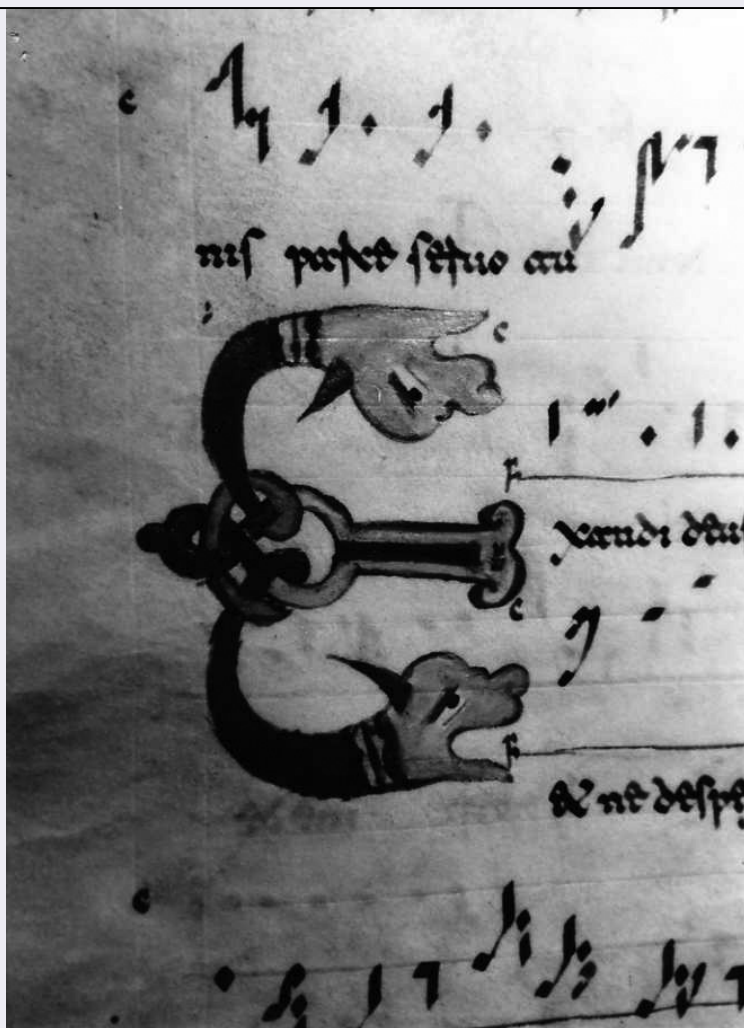 c
nis parce seruo tu
c
F
Exaudi deu
c
F
& ne despe
c